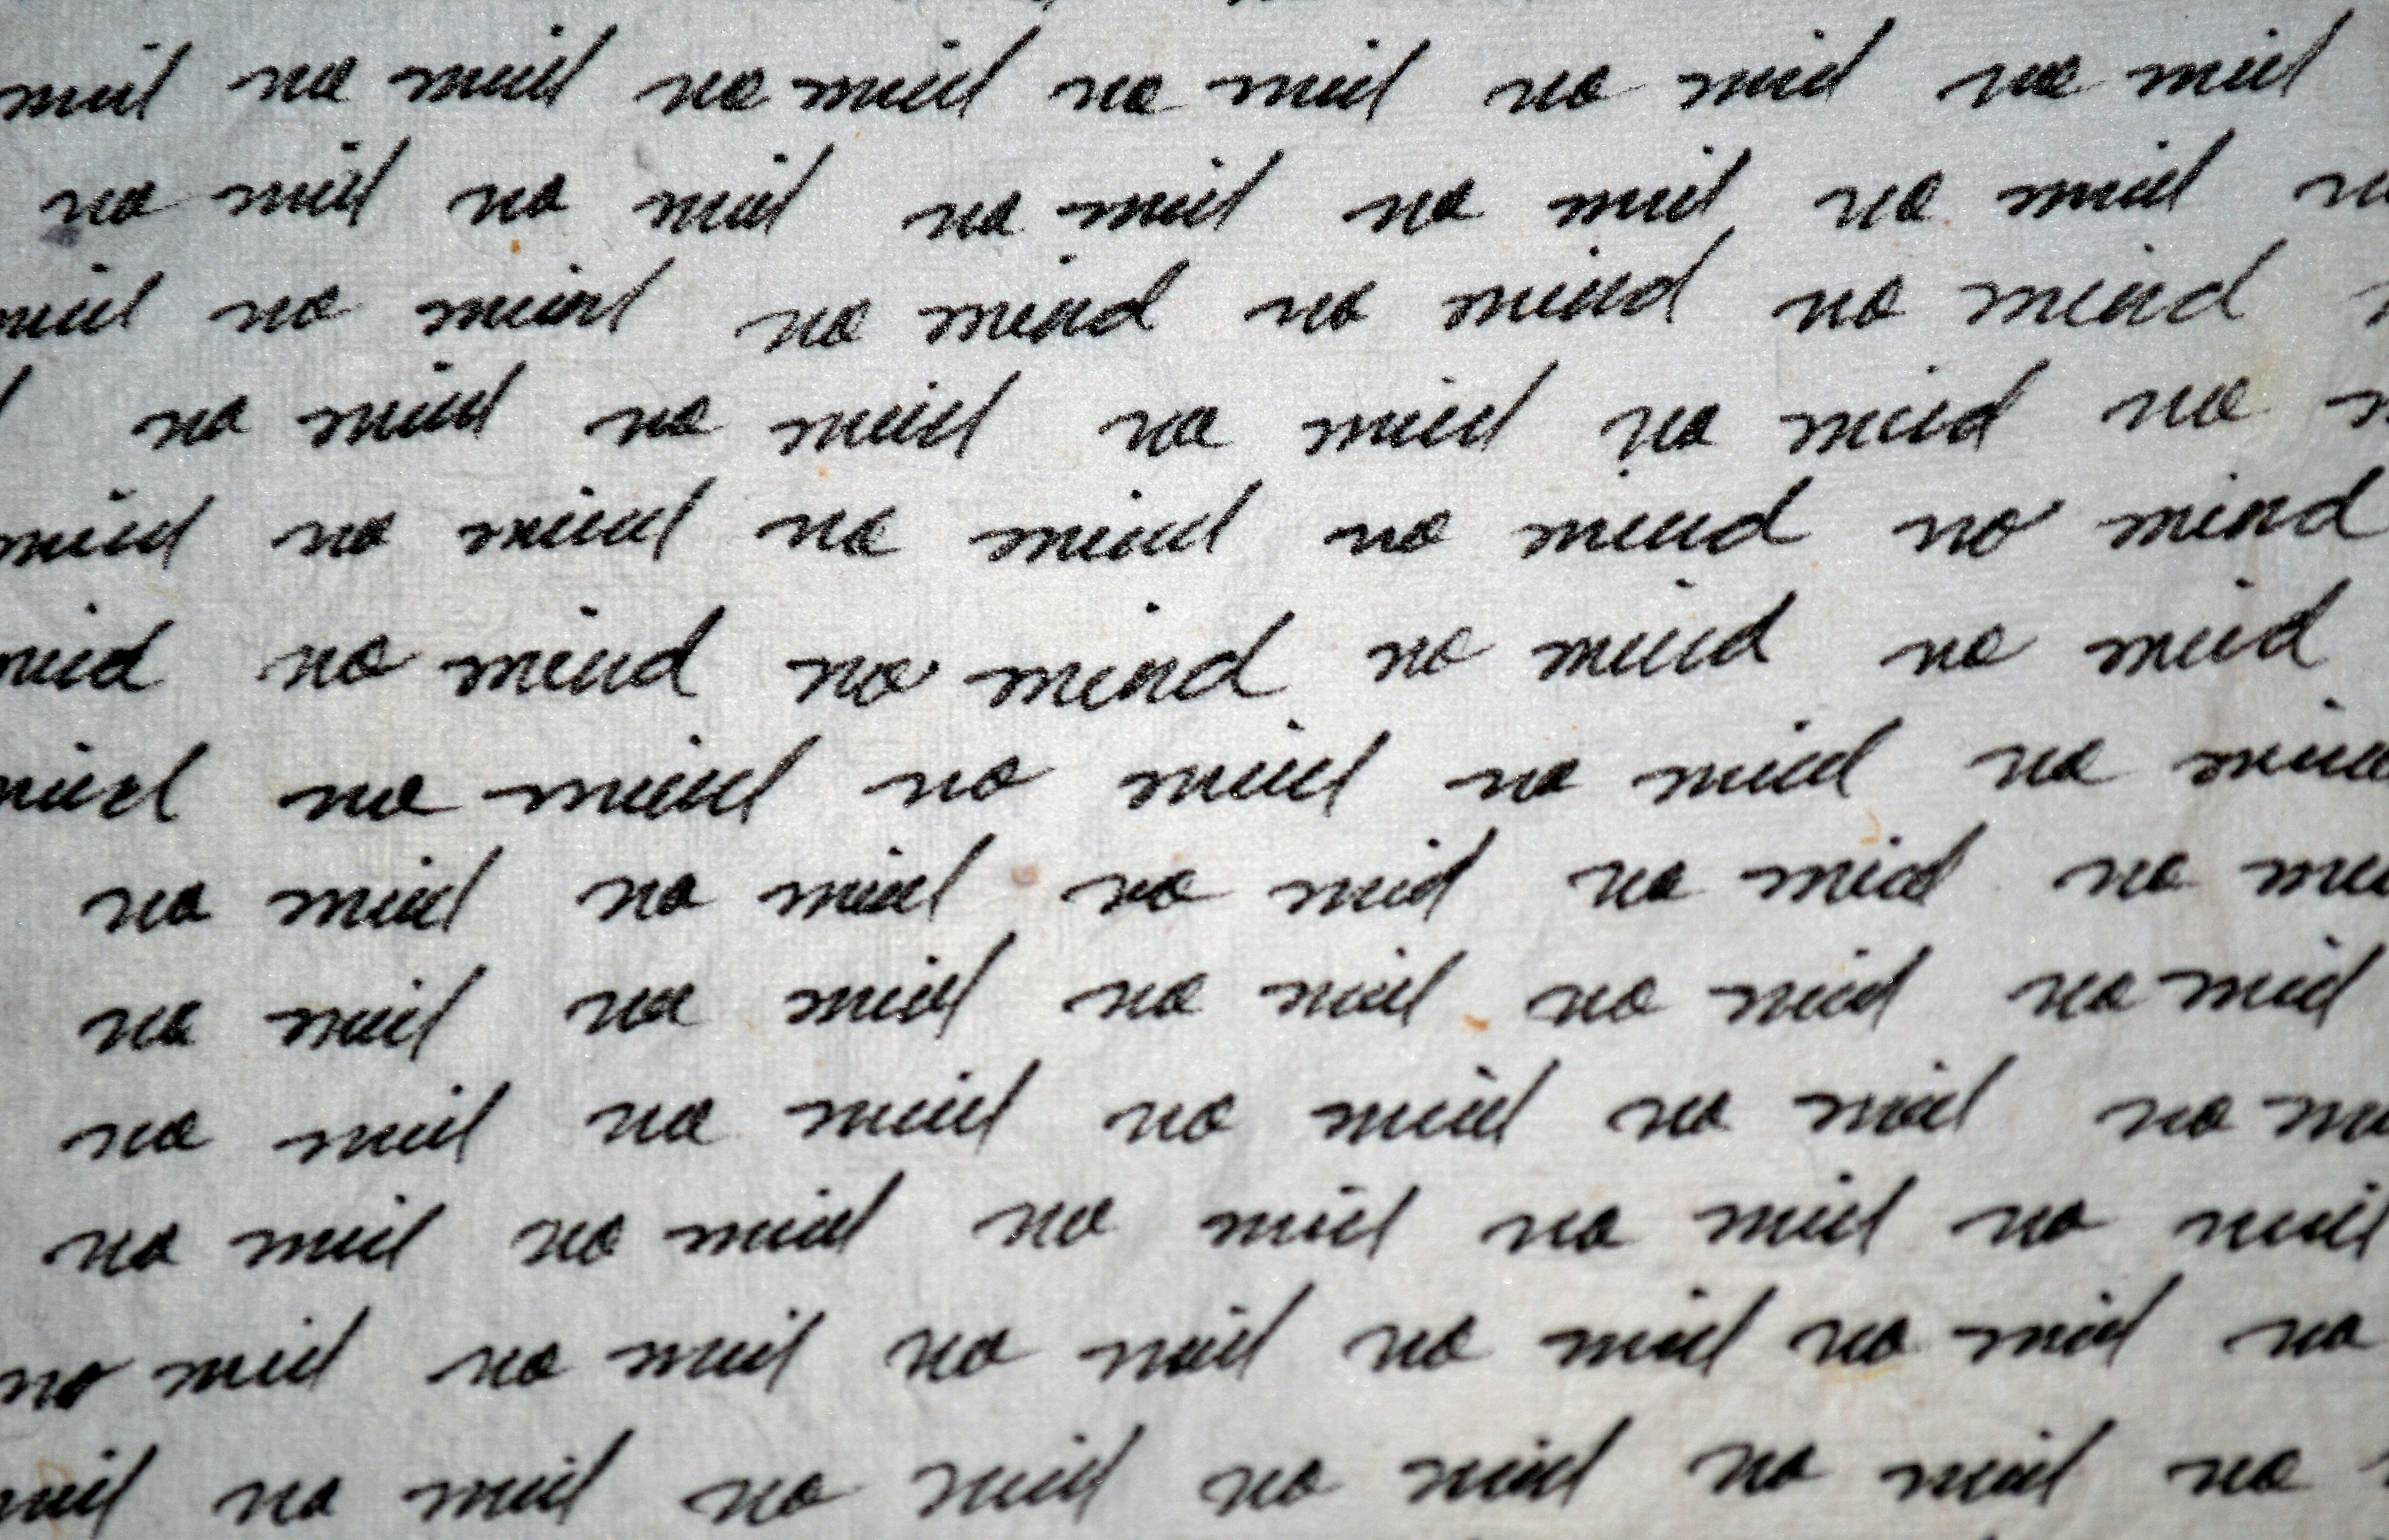 mind no mind no mind no mind no mind no mind
no mind no mind no mind no mind no mind no
mind no mind no mind no mind no mind
no mind no mind no mind no mind no
mind no mind no mind no mind no mind
mind no mind no mind no mind no mind
mind no mind no mind no mind no mind
no mind no mind no mind no mind no
no mind no mind no mind no mind no mind
no mind no mind no mind no mind no
no mind no mind no mind no mind no mind
no mind no mind no mind no mind no mind no
mind no mind no mind no mind no mind no